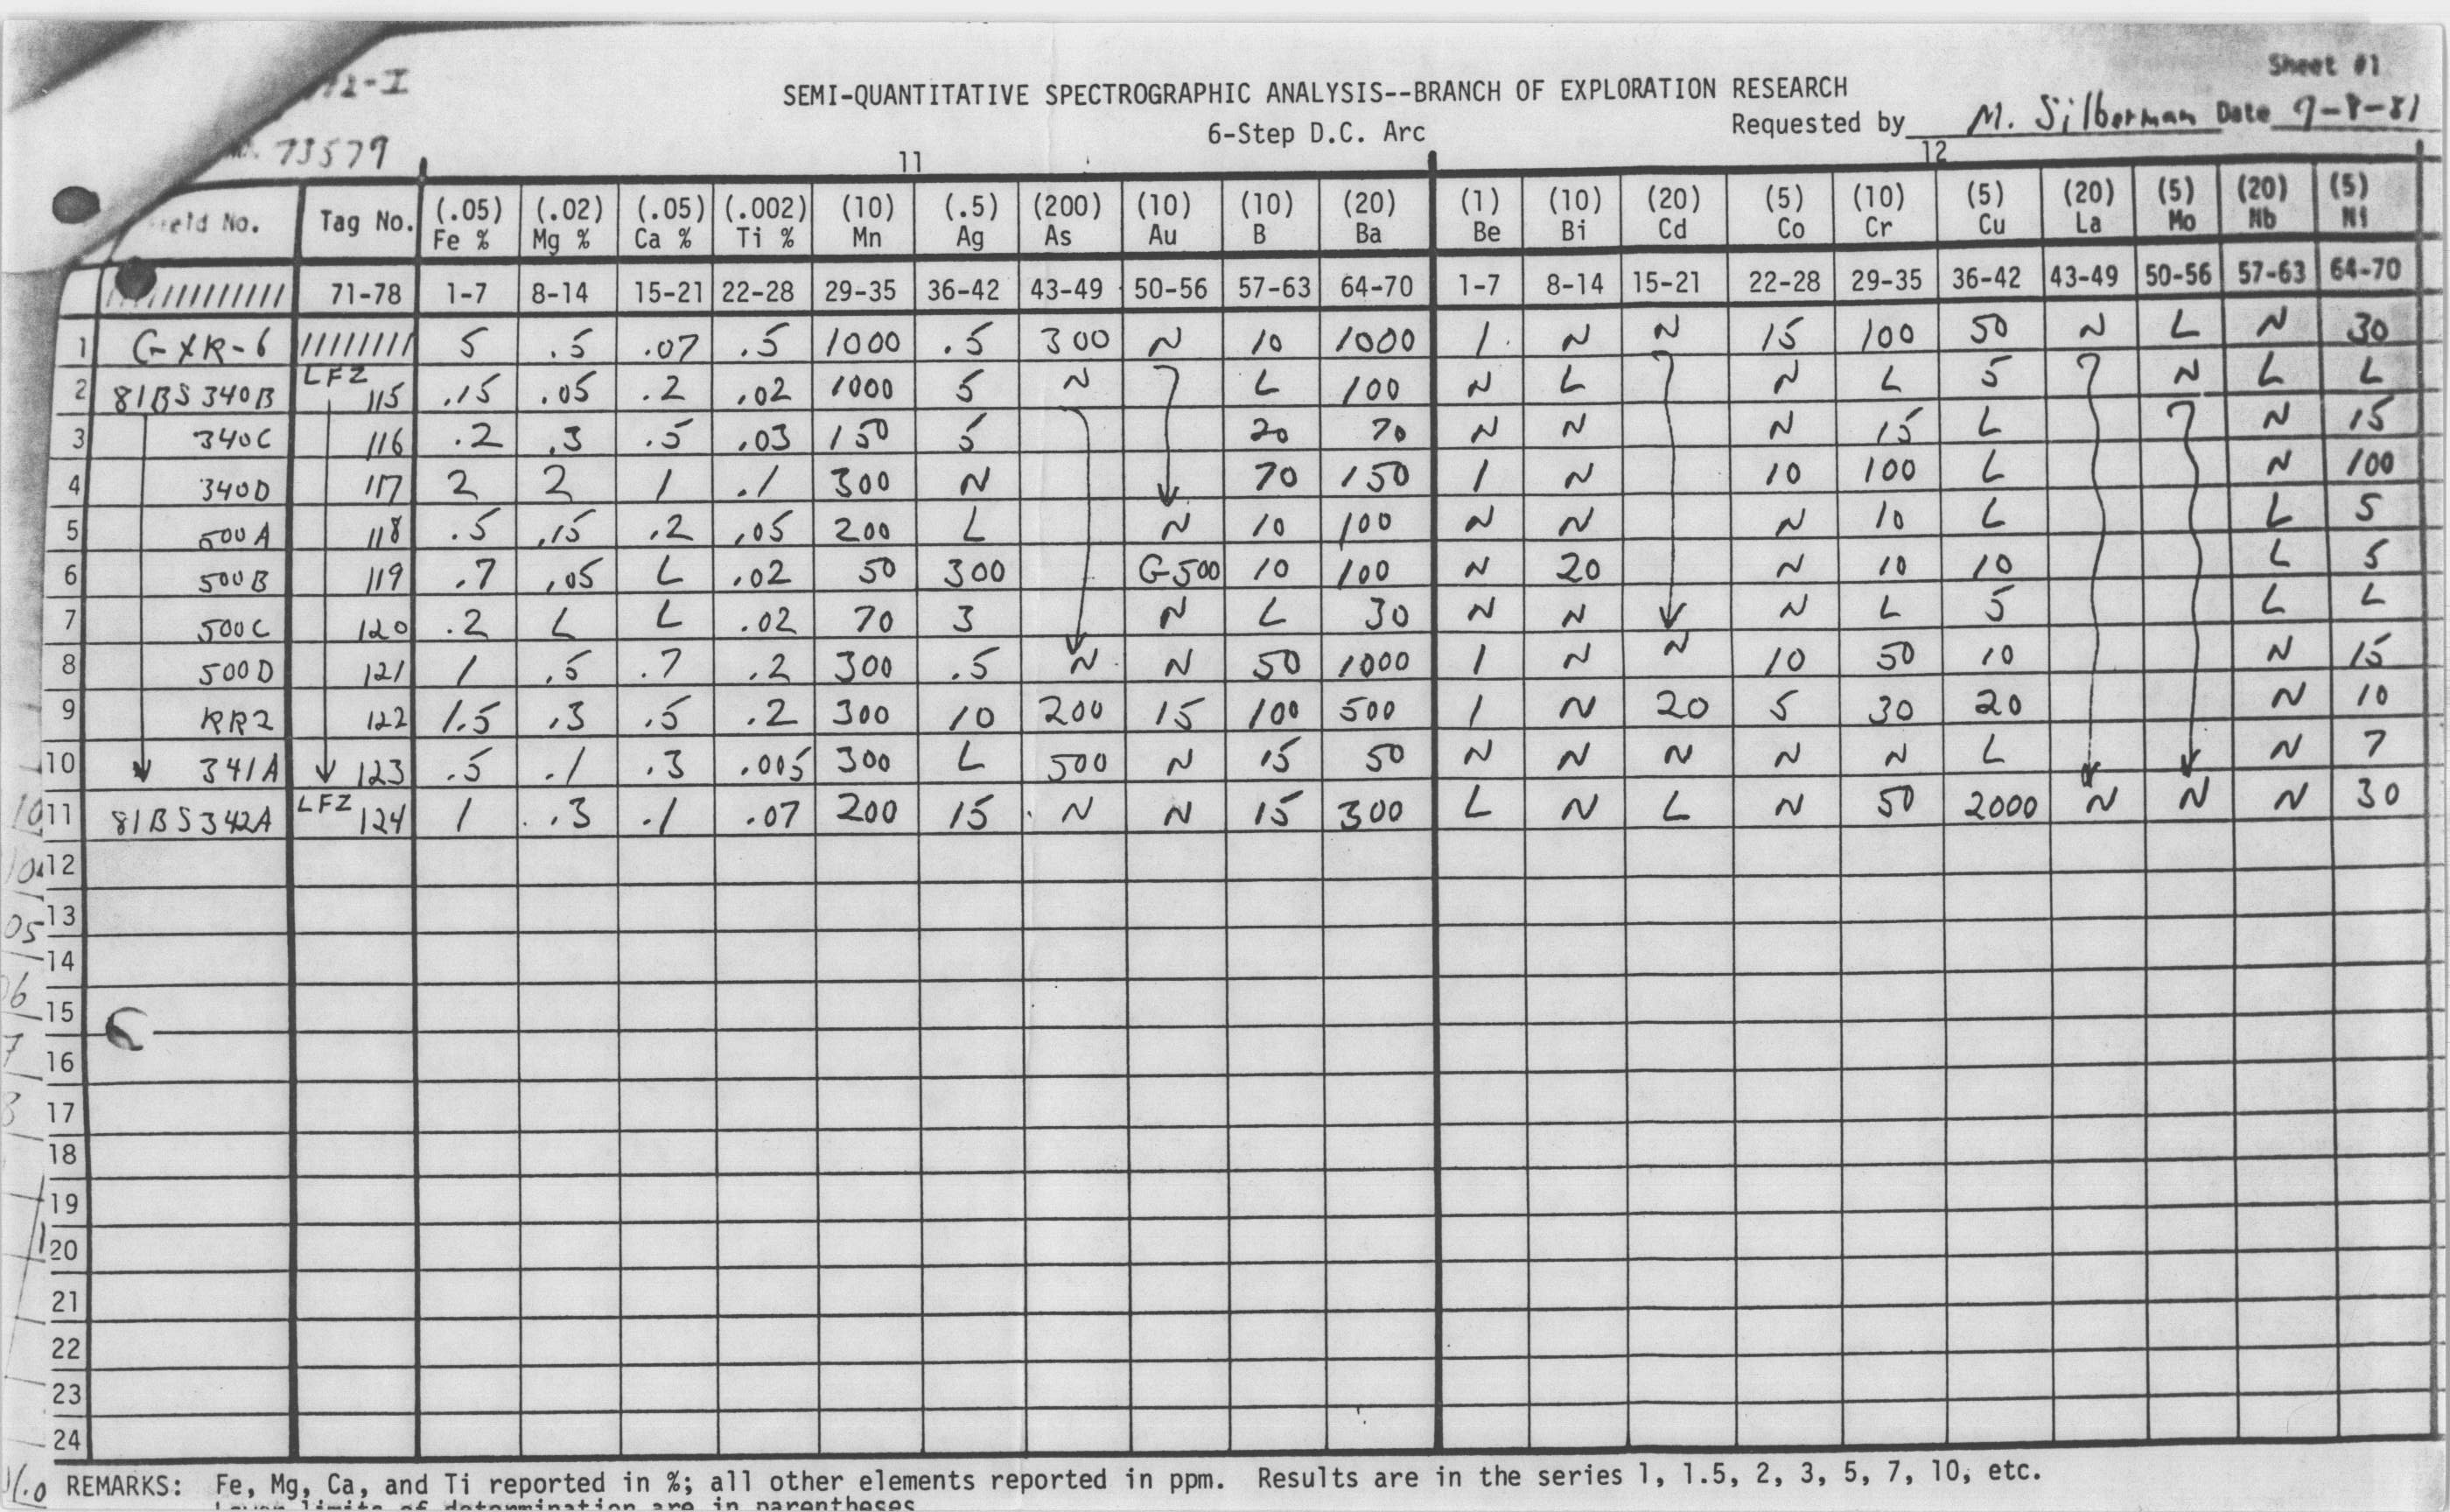 SEMI-QUANTITATIVE SPECTROGRAPHIC ANALYSIS--BRANCH OF EXPLORATION RESEARCH
Sheet #1
6-Step D.C. Arc
Requested by M. Silberman Date 9-8-81
73579
11 12
Field No. Tag No. (.05) Fe % (.02) Mg % (.05) Ca % (.002) Ti % (10) Mn (.5) Ag (200) As (10) Au (10) B (20) Ba (1) Be (10) Bi (20) Cd (5) Co (10) Cr (5) Cu (20) La (5) Mo (20) Nb (5) Ni
71-78 1-7 8-14 15-21 22-28 29-35 36-42 43-49 50-56 57-63 64-70 1-7 8-14 15-21 22-28 29-35 36-42 43-49 50-56 57-63 64-70
1 GXR-6 5 .5 .07 .5 1000 .5 300 N 10 1000 1 N N 15 100 50 N L N 30
2 81BS340B LFZ 115 .15 .05 .2 .02 1000 5 N L 100 N L N L 5 N L L
3 340C 116 .2 .3 .5 .03 150 5 20 70 N N N 15 L N 15
4 340D 117 2 2 1 .1 300 N 70 150 1 N 10 100 L N 100
5 500A 118 .5 .15 .2 .05 200 L N 10 100 N N N 10 L L 5
6 500B 119 .7 .05 L .02 50 300 G500 10 100 N 20 N 10 10 L 5
7 500C 120 .2 L L .02 70 3 N L 30 N N N L 5 L L
8 500D 121 1 .5 .7 .2 300 .5 N N 50 1000 1 N N 10 50 10 N 15
9 RR2 122 1.5 .3 .5 .2 300 10 200 15 100 500 1 N 20 5 30 20 N 10
10 341A 123 .5 .1 .3 .005 300 L 500 N 15 50 N N N N N L N 7
11 81BS342A LFZ 124 1 .3 .1 .07 200 15 N N 15 300 L N L N 50 2000 N N N 30
12
13
14
15
16
17
18
19
20
21
22
23
24
REMARKS: Fe, Mg, Ca, and Ti reported in %; all other elements reported in ppm. Results are in the series 1, 1.5, 2, 3, 5, 7, 10, etc.
Lower limits of determination are in parentheses